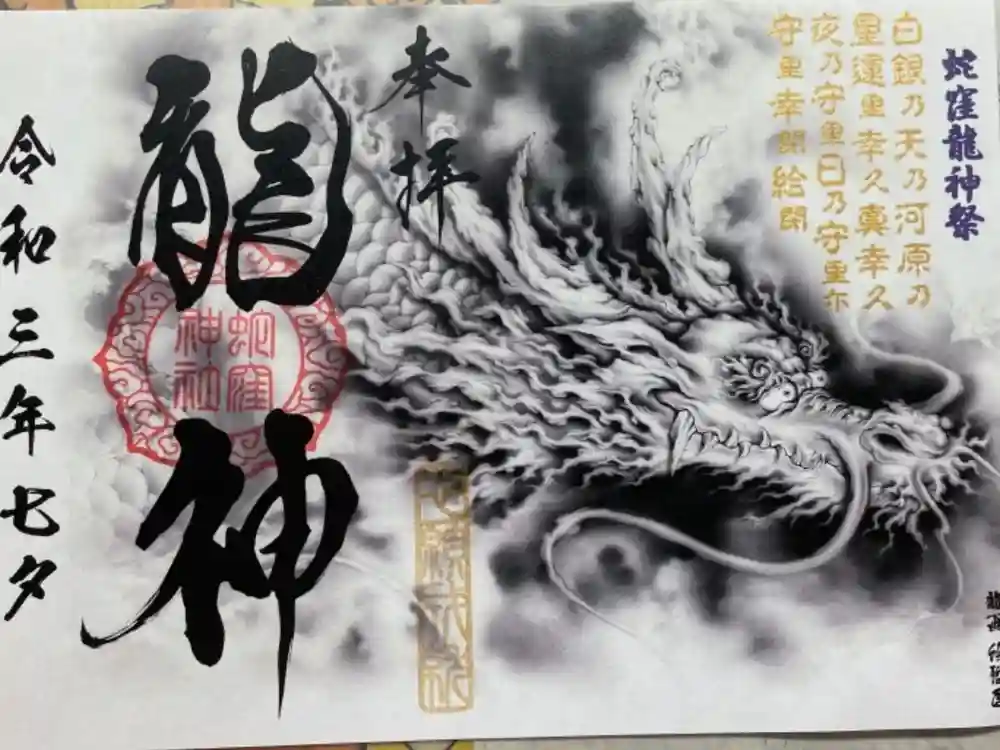 蛇窪龍神祭
白銀乃天乃河原乃
星還里幸久真幸久
夜乃守里日乃守里尓
守里幸閇給閇
奉拝
龍神
蛇窪
神社
令和三年七夕